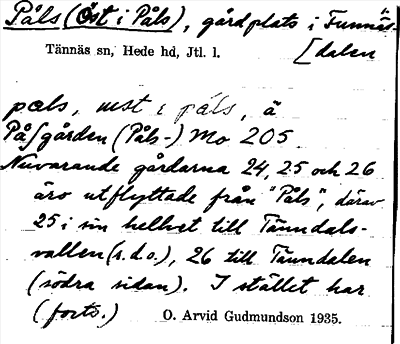 Påls (Öst i Påls), gårdplats i Funnäs-
[dalen
Tännäs sn, Hede hd, Jtl. l.
påls, ust i påls, å
Påſgården (Påls-) Mo 205
Nuvarande gårdarna 24, 25 och 26
äro utflyttade från "Påls", därav
25 i sin helhet till Tänndals-
vallen (s.d.o.), 26 till Tänndalen
(södra sidan). I stället har
(forts.)
O. Arvid Gudmundson 1935.